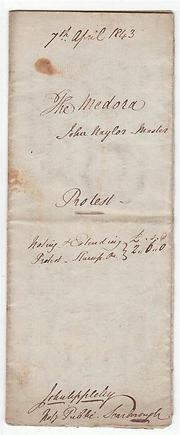 7th April 1843
The Medora
John Naylor Master
Protest
Noting & Extending } £ s d
Protest - Stamp &c } 2. 0. 0
John Uppleby
Not. Public Scarborough